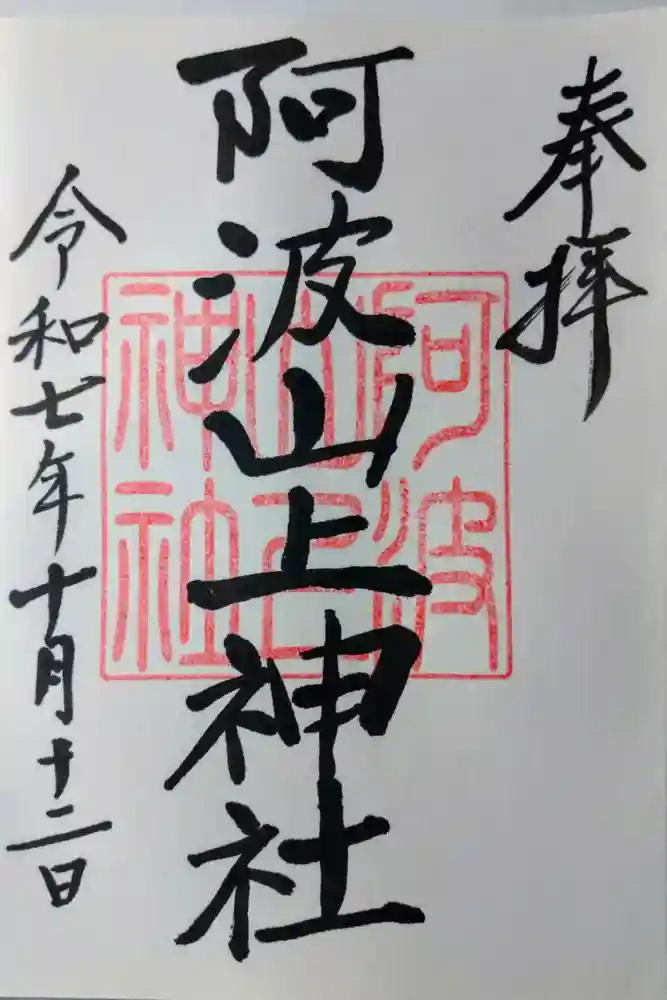 奉拝
阿波山上神社
阿波
山上
神社
令和七年十月十二日